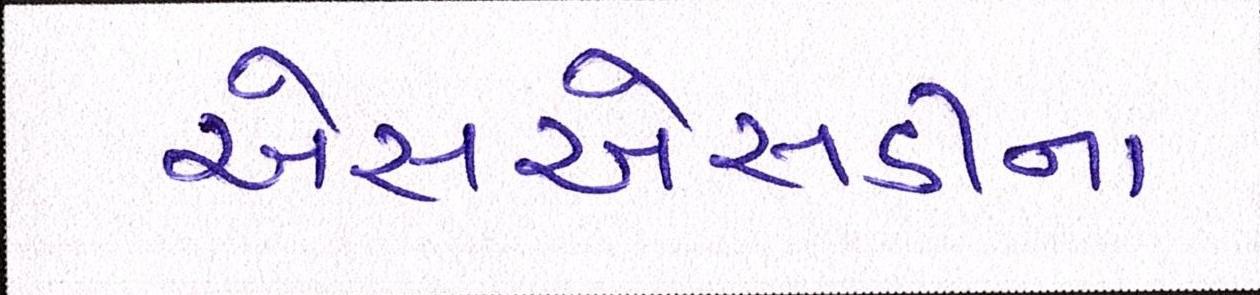 એસએસડીના